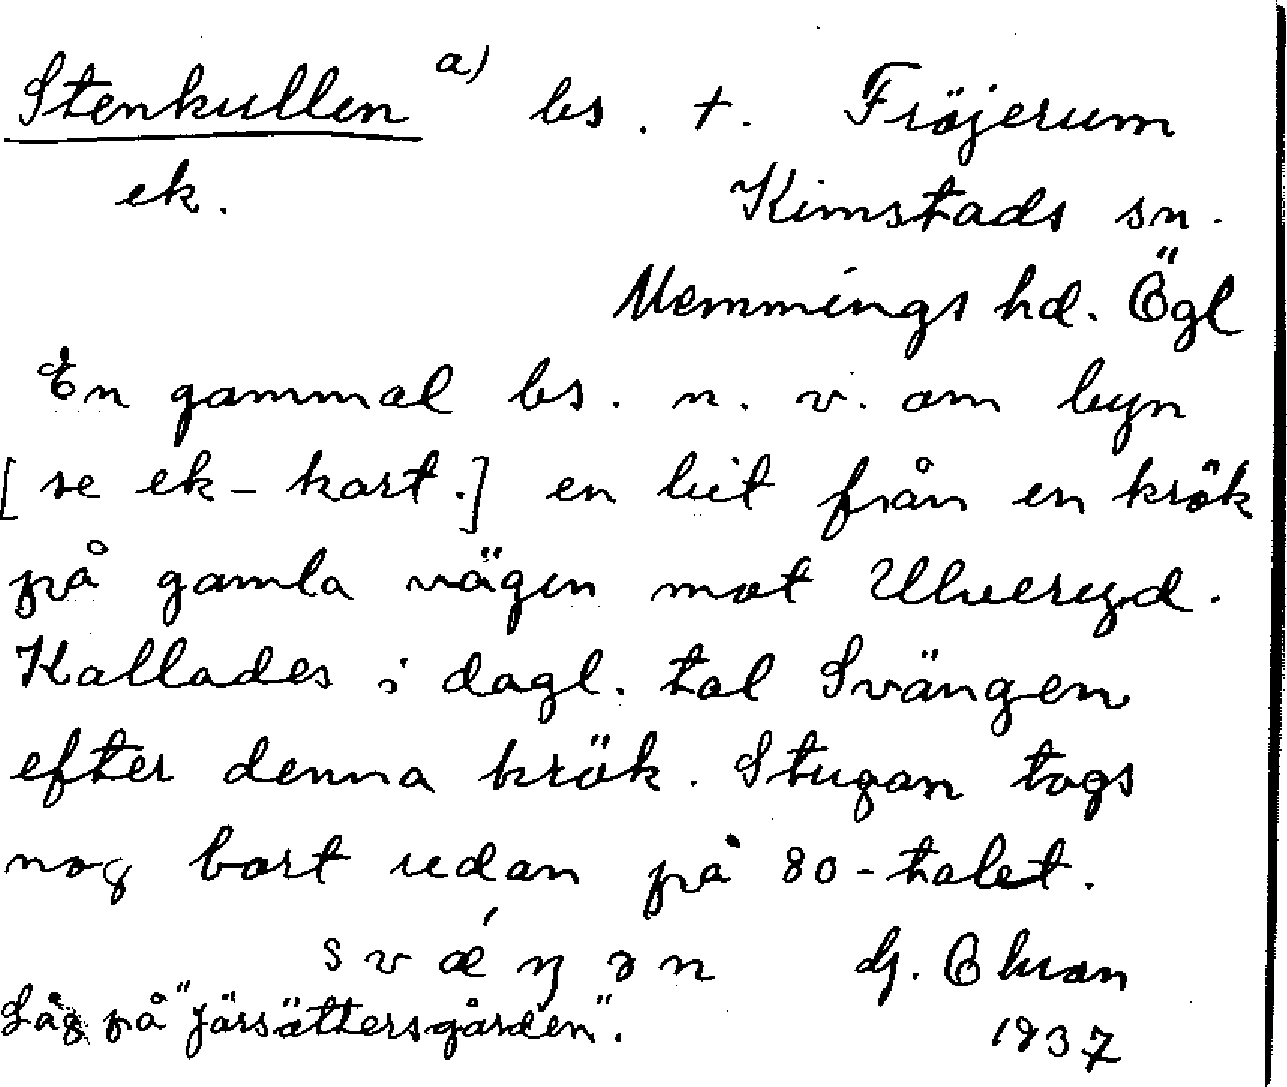 Stenkullen a) bs. +. Fröjerum
ek. Kimstads sn.
Memmings hd. Ögl
En gammal bs. n. v. om byn
[se ek-kart.] en bit från en krök
på gamla vägen mot Ulveryd.
Kallades i dagl. tal Svängen
efter denna krök. Stugan togs
nog bort redan på 80-talet.
svǽŋən G. Ekman
Låg på "Järsättersgården". 1937